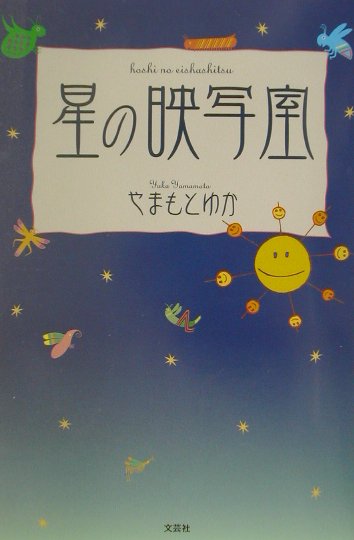 hoshi no eishashitsu
星の映写室
Yuka Yamamoto
やまもとゆか
文芸社